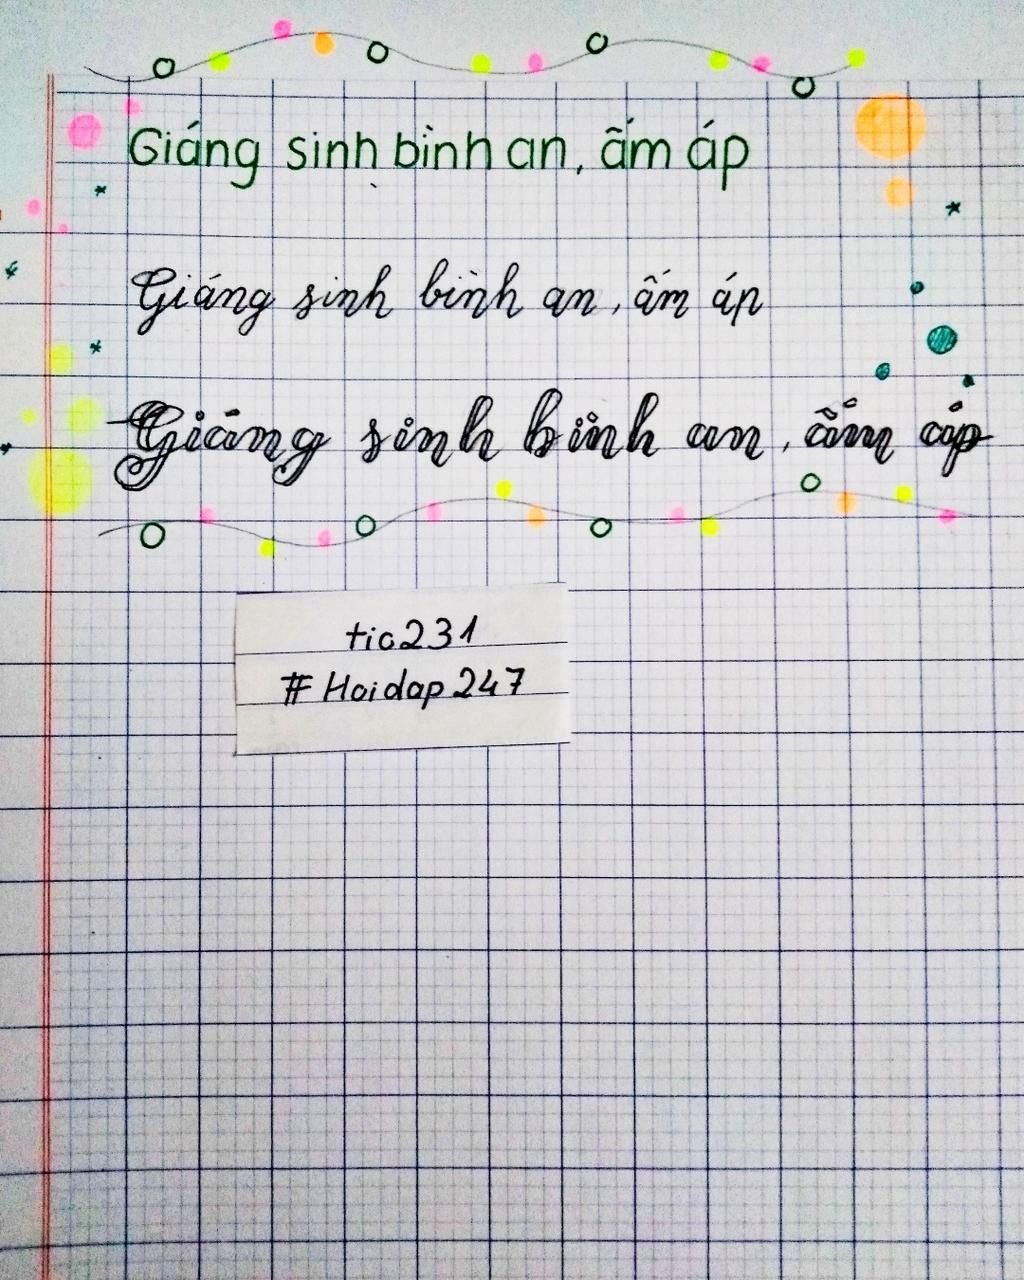 Giáng sinh bình an, ấm áp
Giáng sinh bình an, ấm áp
Giáng sinh bình an, ấm áp
tic231
#Hoidap247